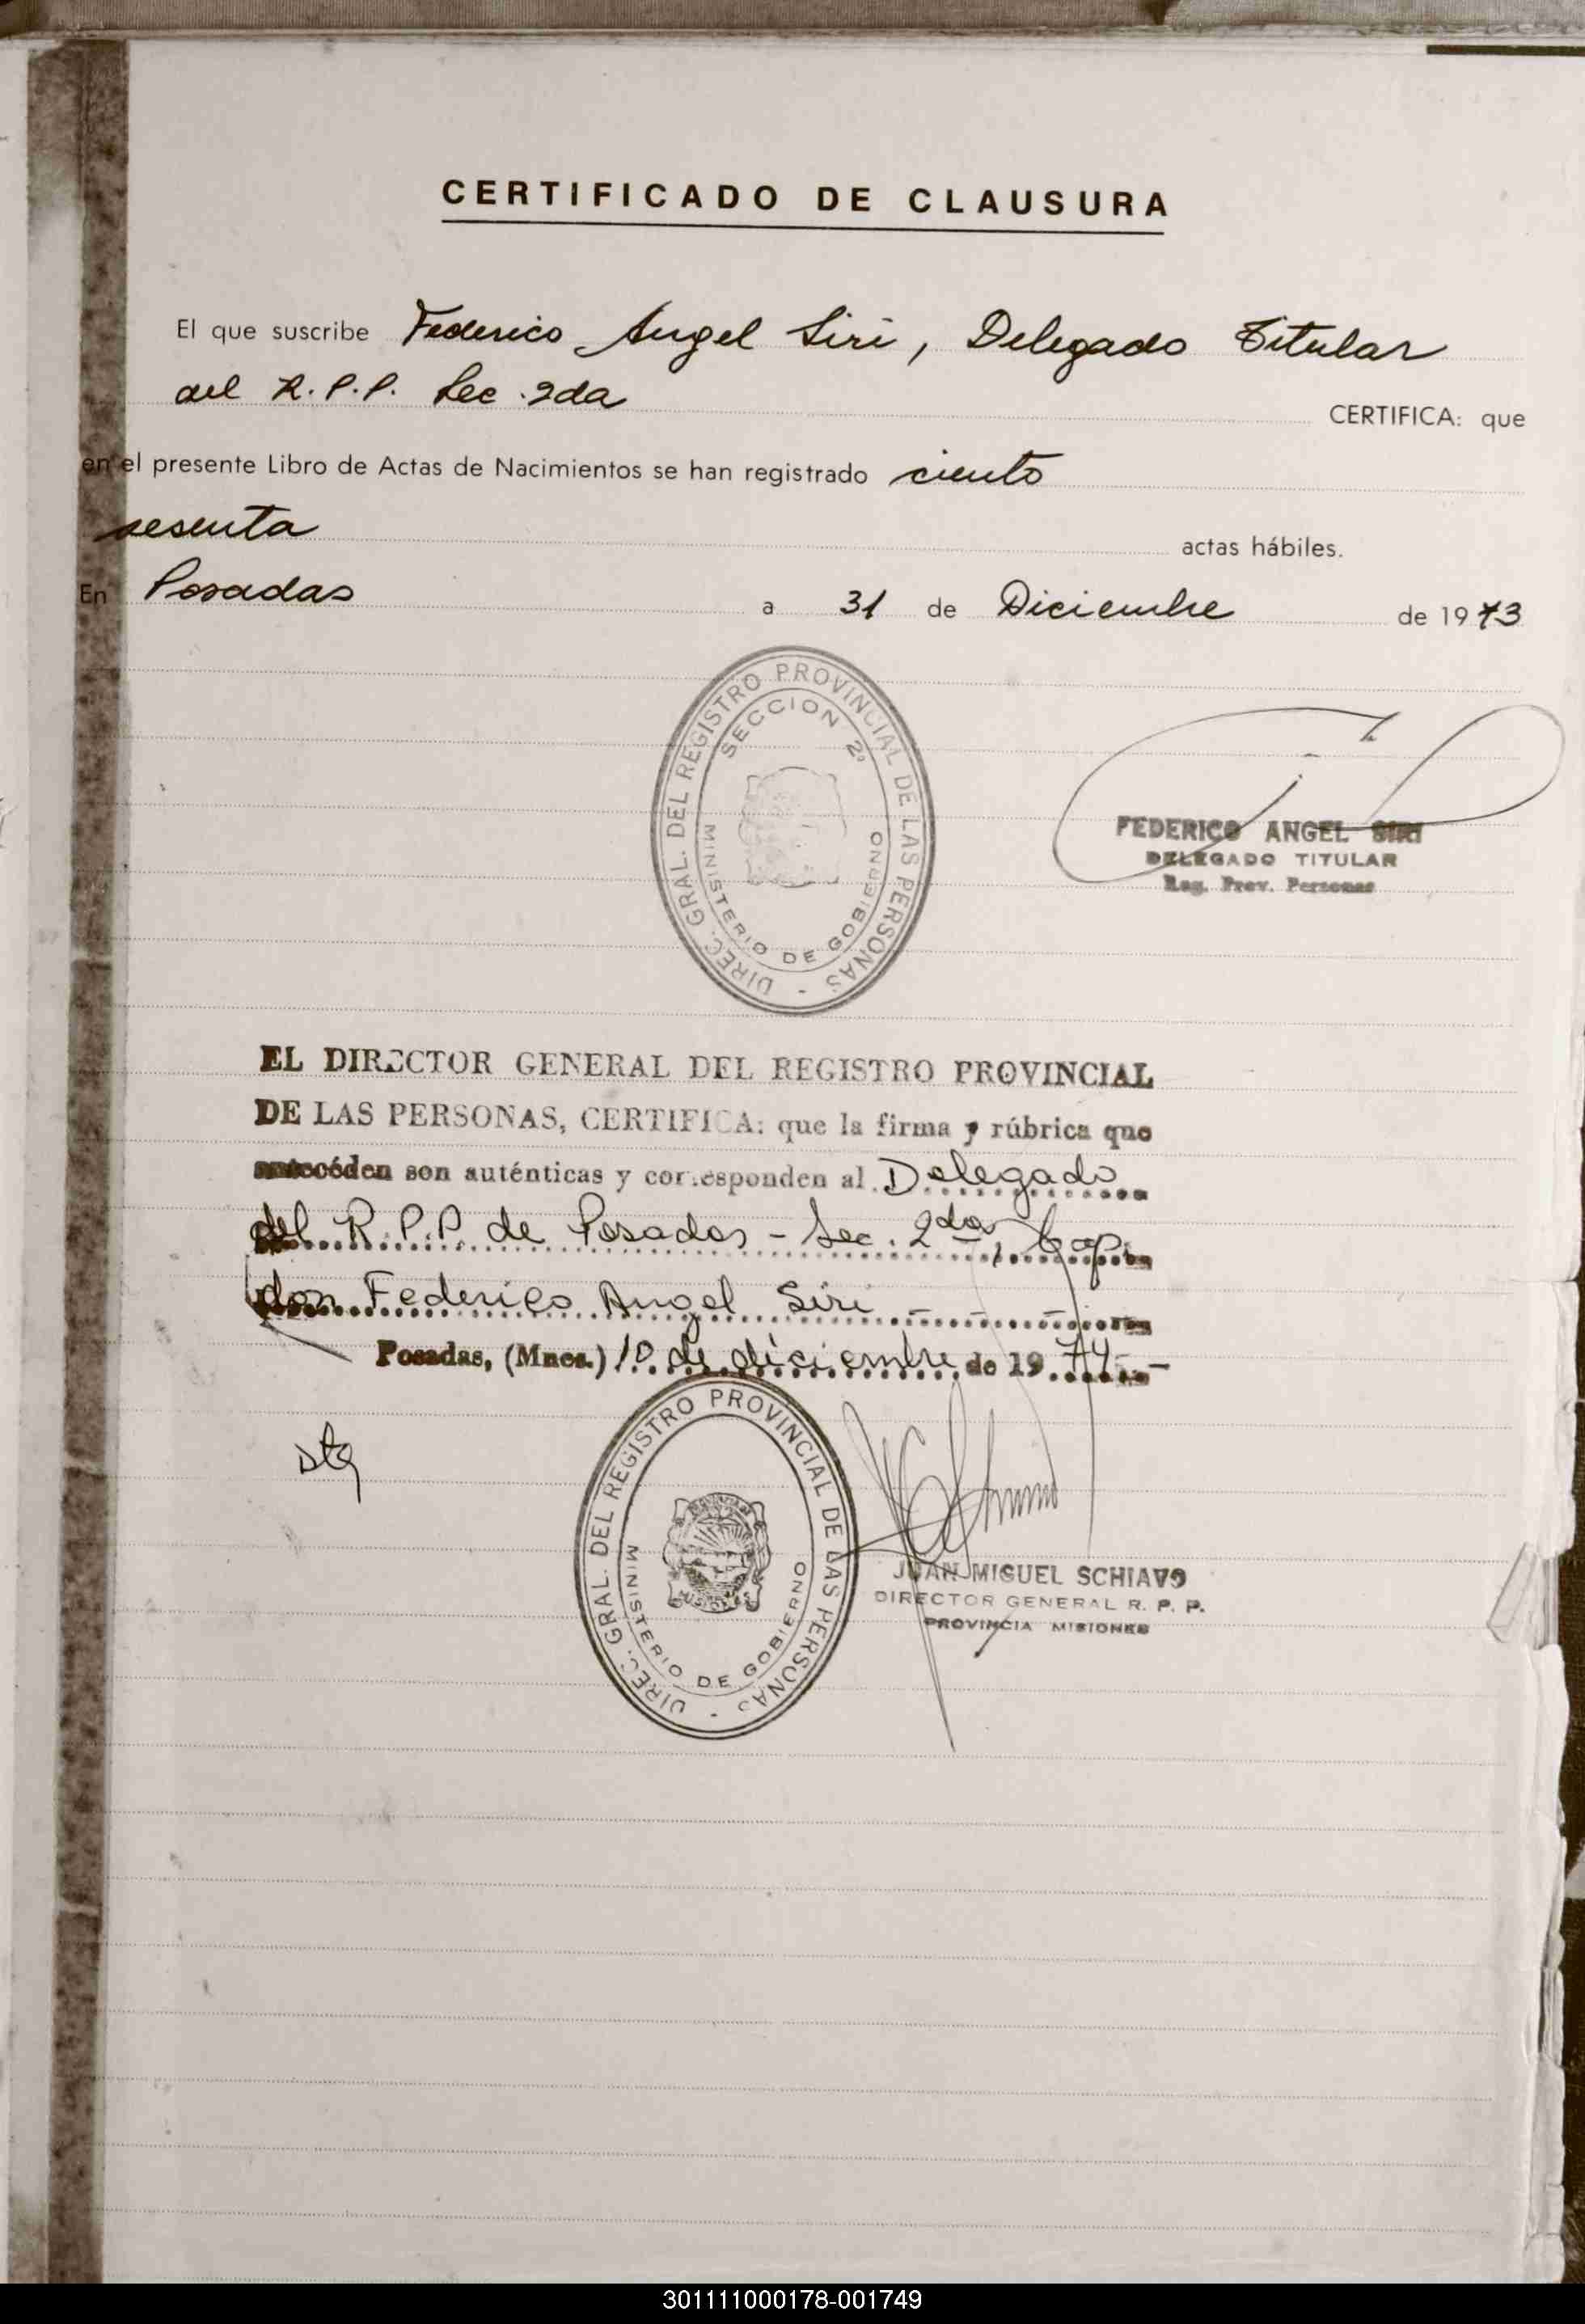 CERTIFICADO DE CLAUSURA
El que suscribe Federico Angel Siri, Delegado Titular
del R.P.P. Sec. 2da CERTIFICA: que
en el presente Libro de Actas de Nacimientos se han registrado ciento
sesenta actas hábiles.
En Posadas a 31 de Diciembre de 1973
DIREC. GRAL. DEL REGISTRO PROVINCIAL DE LAS PERSONAS -
SECCION 2ª
MINISTERIO DE GOBIERNO
FEDERICO ANGEL SIRI
DELEGADO TITULAR
Reg. Prov. Personas
EL DIRECTOR GENERAL DEL REGISTRO PROVINCIAL
DE LAS PERSONAS, CERTIFICA: que la firma y rúbrica que
antecéden son auténticas y corresponden al Delegado
del R.P.P. de Posadas - Sec. 2da, Cap.
don Federico Angel Siri - - -
Posadas, (Mnes.) 10 de diciembre de 1974.-
DIREC. GRAL. DEL REGISTRO PROVINCIAL DE LAS PERSONAS -
MINISTERIO DE GOBIERNO
JUAN MIGUEL SCHIAVO
DIRECTOR GENERAL R. P. P.
PROVINCIA MISIONES
301111000178-001749